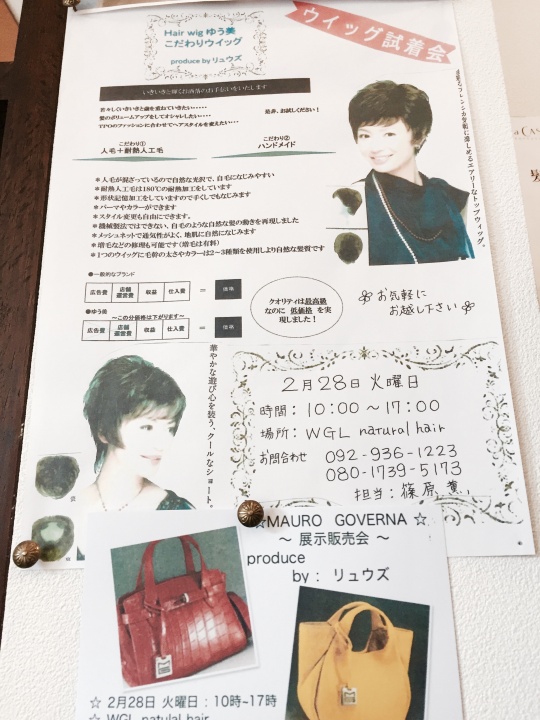 Hair wig ゆう美
こだわりウイッグ
produce by リュウズ
ウイッグ試着会
いきいきと輝くお洒落のお手伝いをいたします
若々しくいきいきと歳を重ねていきたい・・・・
髪のボリュームアップをしてオシャレしたい・・・・
TPOのファッションに合わせてヘアスタイルを変えたい・・・
是非、お試しください!
こだわり①
人毛+耐熱人工毛
こだわり②
ハンドメイド
*人毛が混ざっているので自然な光沢で、自毛になじみやすい
*耐熱人工毛は180℃の耐熱加工をしています
*形状記憶加工をしていますので手ぐしでもなじみます
*パーマやカラーができます
*スタイル変更も自由にできます。
*機械製法ではできない、自毛のような自然な髪の動きを再現しました
*メッシュネットで通気性がよく、地肌に自然になじみます
*増毛などの修理も可能です(増毛は有料)
*1つのウイッグに毛幹の太さやカラーは2~3種類を使用しより自然な髪質です
楽しめるエアリーなトップウィッグ。
●一般的なブランド
広告費 店舗運営費 収益 仕入費 = 価格
●ゆう美
~この分価格は下がります~
広告費 店舗運営費 収益 仕入費 = 価格
クオリティは最高級
なのに 低価格 を実
現しました!
お気軽に
お越し下さい
華やかな遊び心を装う、クールなショート。
2月28日 火曜日
時間: 10:00~17:00
場所: WGL natural hair
お問合わせ 092-936-1223
080-1739-5173
担当: 篠原 薫
☆MAURO GOVERNA ☆
~ 展示販売会 ~
produce
by : リュウズ
☆ 2月28日 火曜日:10時~17時
☆ WGL natulal hair